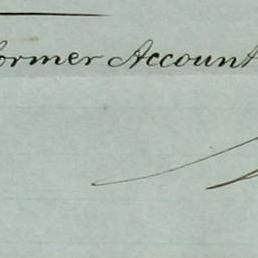 former Account